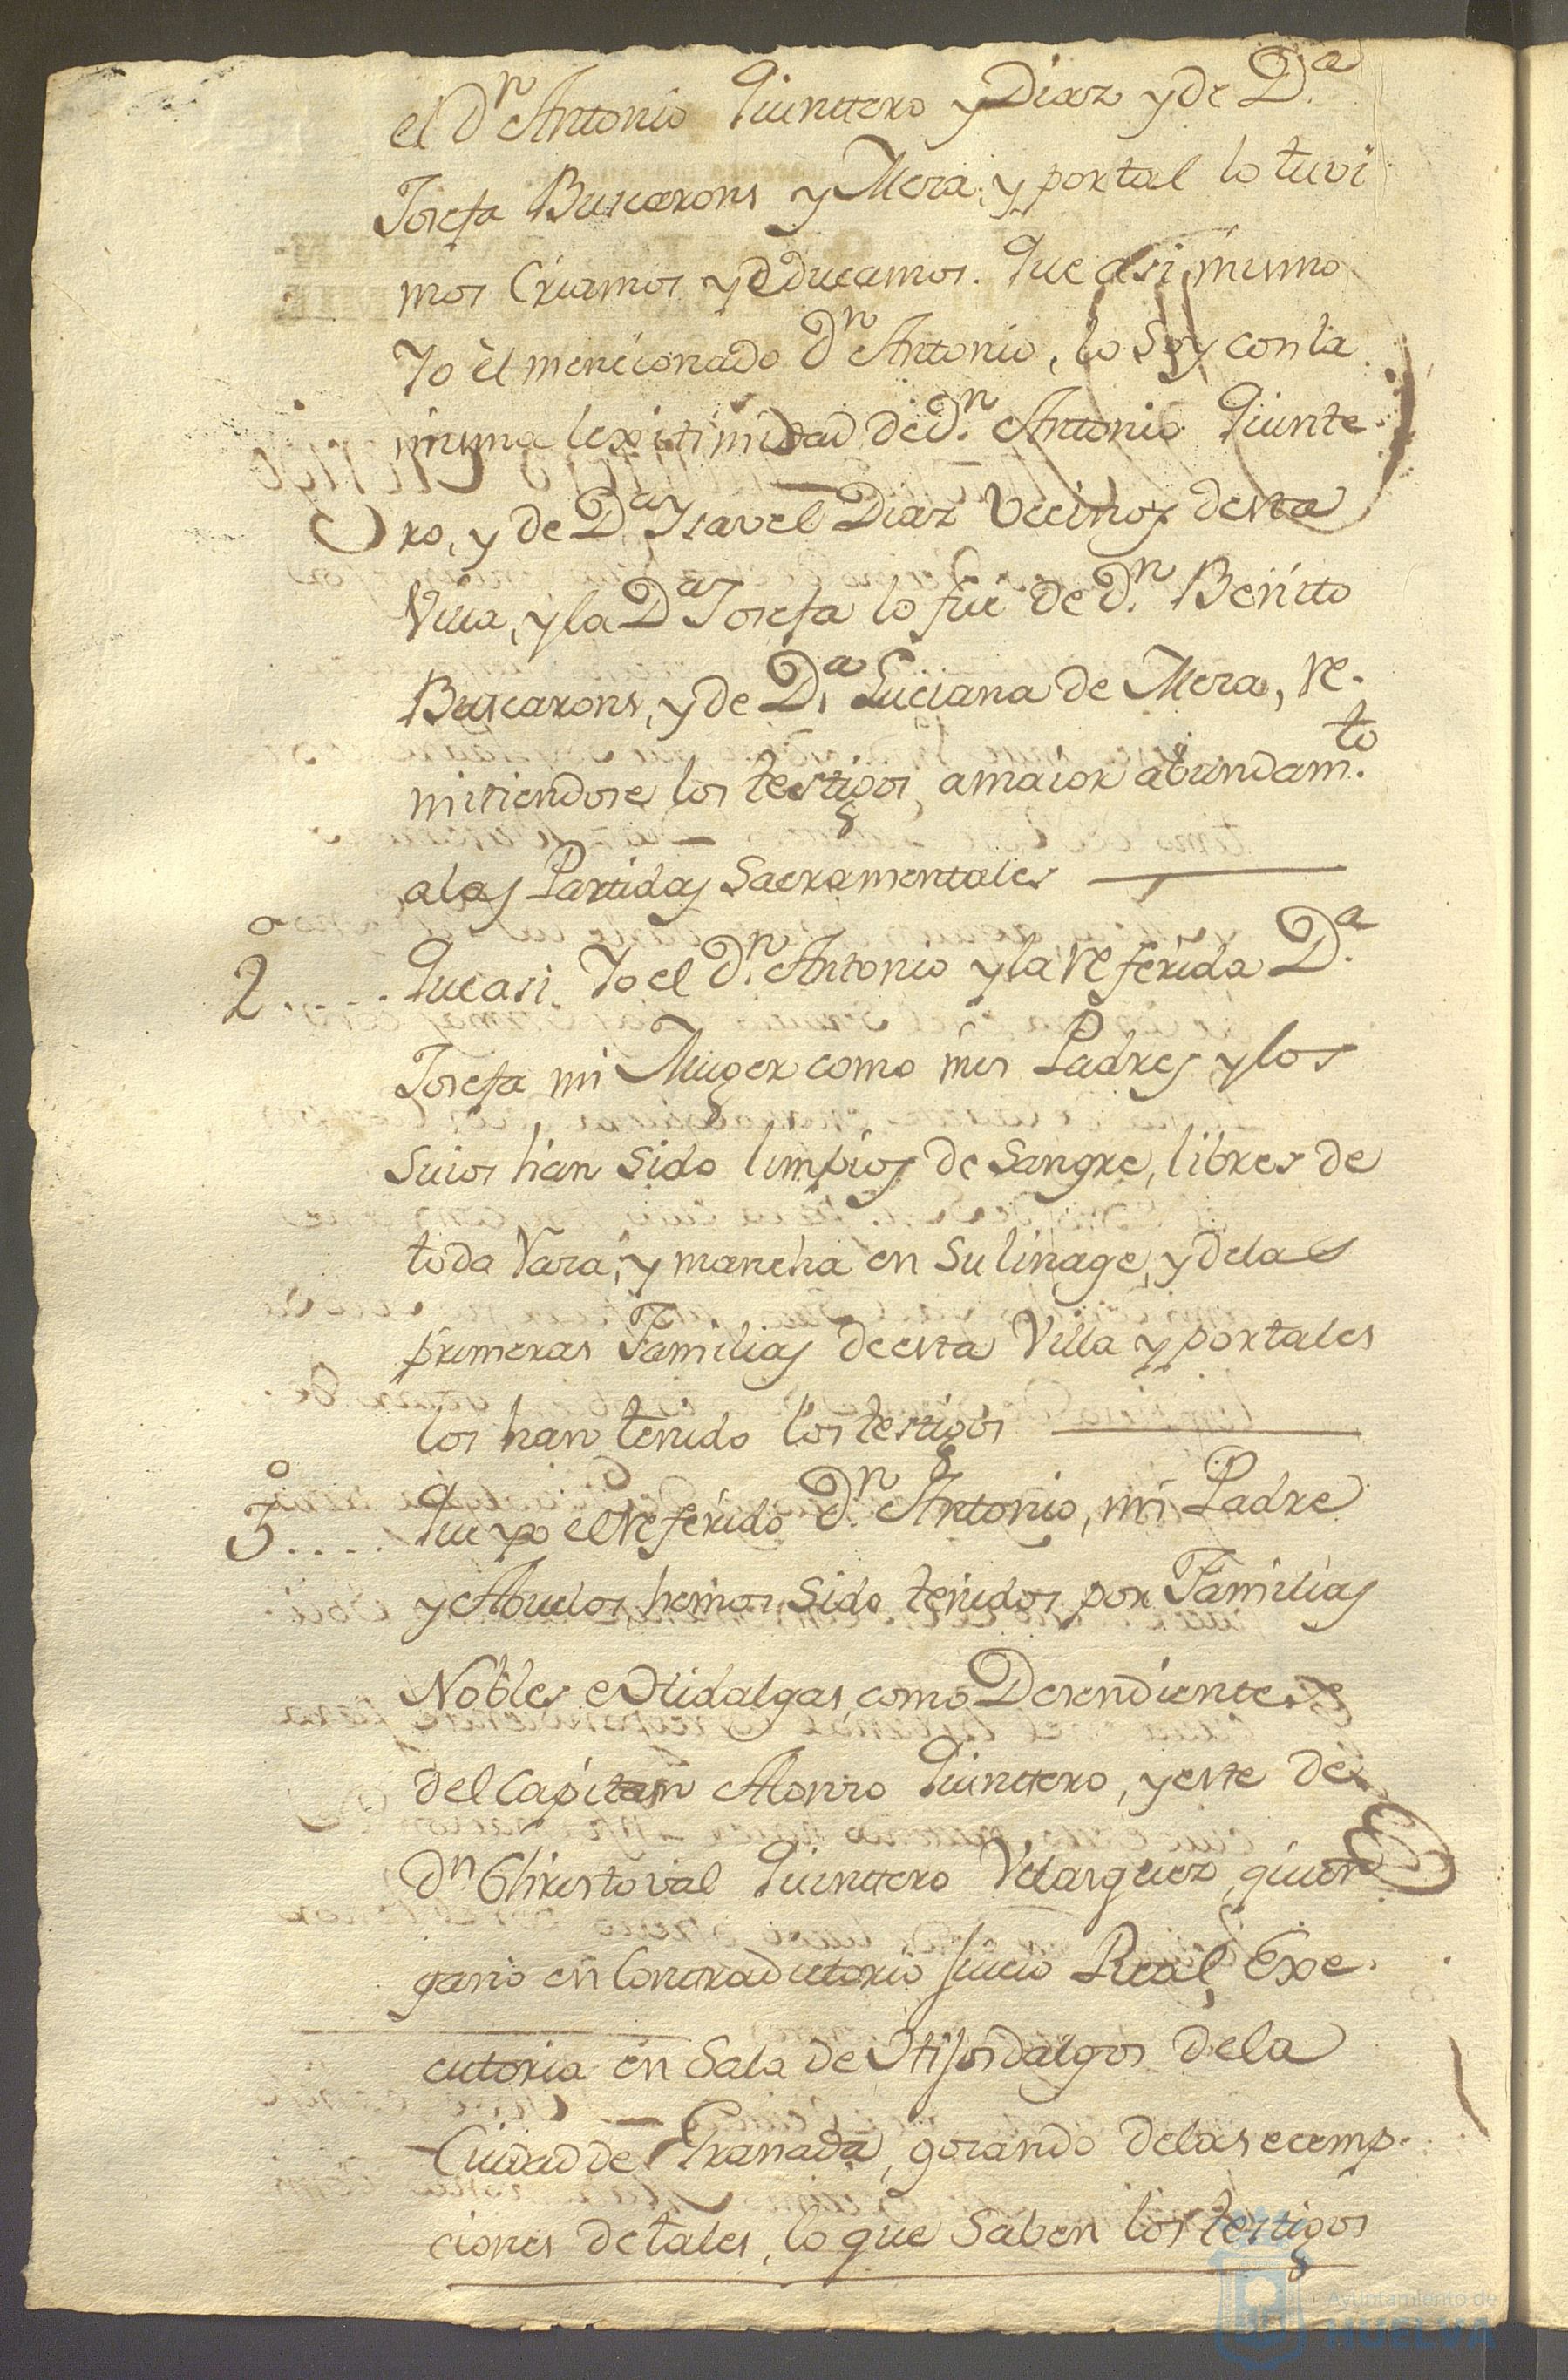 el Dn Antonio Quinttero y Diaz y de Da.
Josefa Buscarons y Mora, y por tal lo tuvi
mos Criamos y educamos. Que asi mismo
Yo el mencionado Dn Antonio, lo Soy con la
misma lexitimidad de Dn. Antonio Quinte
ro, y de Da Ysavel Diaz Vecinos desta
Villa, y la Da Josefa lo fue de Dn. Benitto
Buscarons, y de Da. Luciana de Mora, re-
mitiendose los testigos, a maior abundamto.
a las Partidas Sacramentales
2o.... Que asi Yo el Dn. Antonio y la referida Da.
Josefa mi Muger como mis Padres y los
Suios han Sido limpios de Sangre, libres de
toda Raza, y mancha en Su linage, y de las
primeras Familias de esta Villa y por tales
los han tenido los testigos
3o.... Que yo el referido Dn. Antonio, mi Padre
y Abuelos hemos Sido tenidos por Familias
Nobles e Hidalgas como Desendientes
del Capitan Alonso Quinttero, y este de
Dn Christoval Quinttero Velasquez, quien
gano en Contradictorio Juicio Real Exe-
cutoria en Sala de Hijosdalgos de la
Ciudad de Granada, gozando de las ecemp-
ciones de tales, lo que Saben los testigos
Ayuntamiento de
HUELVA